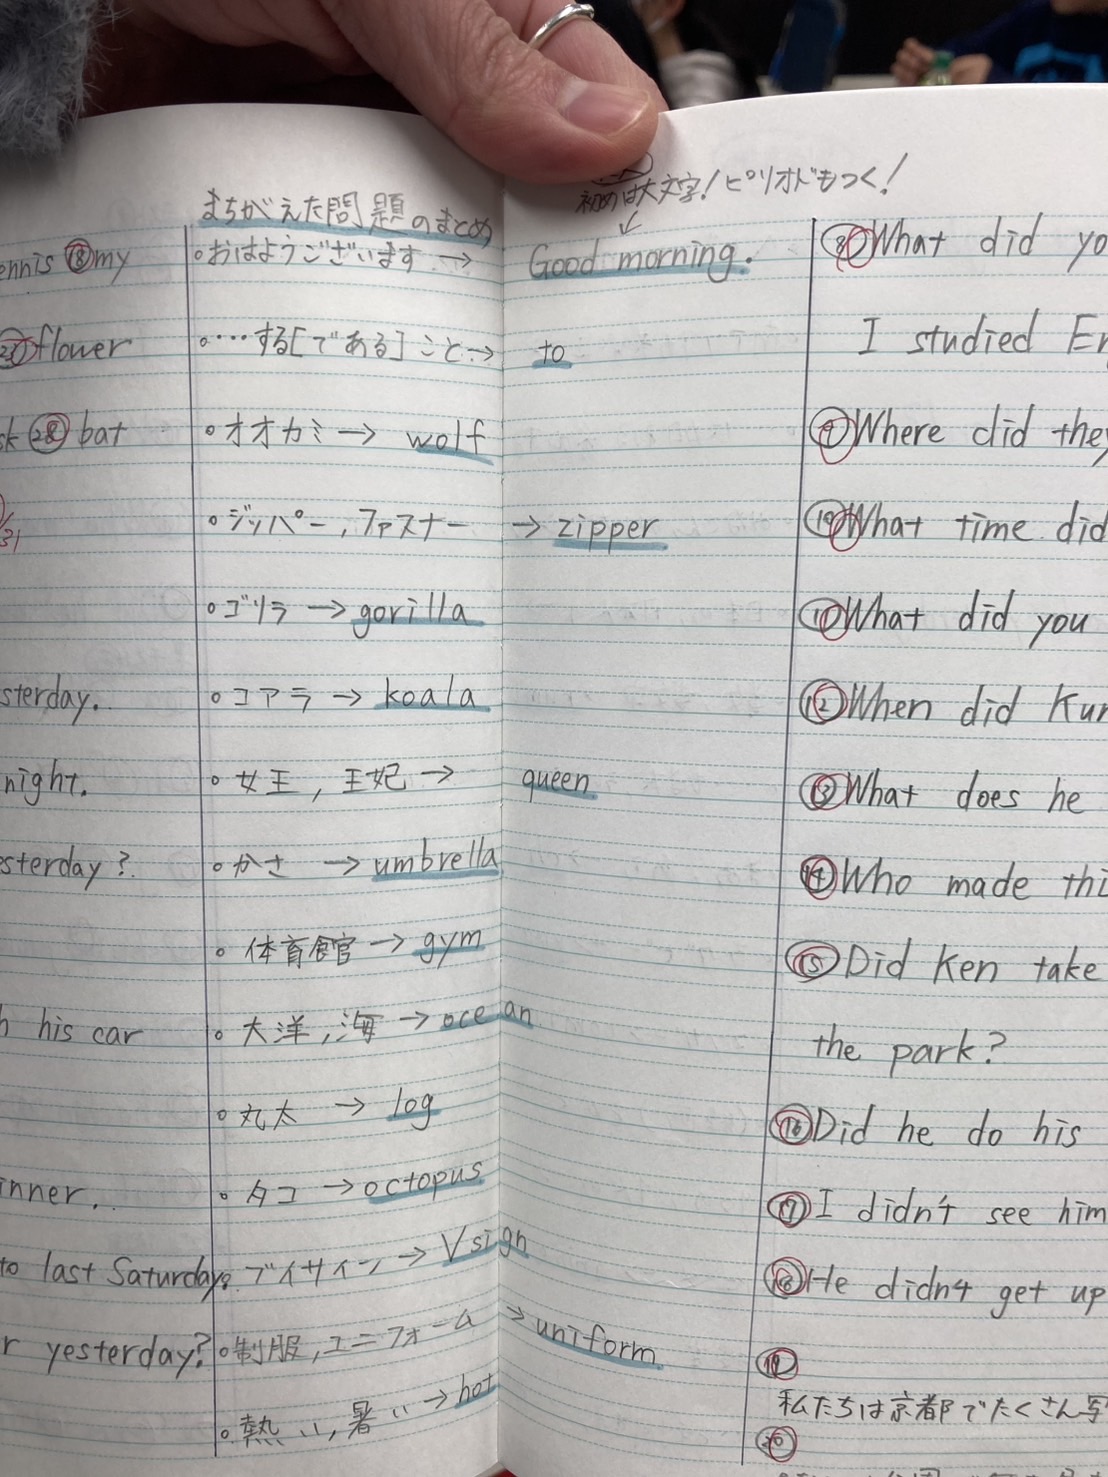 まちがえた問題のまとめ
初めは大文字!ピリオドもつく!
↓
ennis ⑱my
flower
sk ㉘ bat
sterday.
night.
esterday?
his car
inner.
to last Saturday?
r yesterday?
。おはようございます → Good morning.
。…する[である]こと→ to
。オオカミ→ wolf
。ジッパー,ファスナー → zipper
。ゴリラ →gorilla
。コアラ → koala
。女王,王妃 → queen
。かさ → umbrella
。体育館 → gym
。大洋,海 → ocean
。丸太 → log
。タコ →octopus
。ブイサイン → V sign
。制服,ユニフォーム → uniform
。熱い,暑い→hot
⑧What did yo
I studied En
⑨Where did they
⑩What time did
What did you
⑫When did Kur
⑬What does he
⑭Who made thi
⑮Did Ken take
the park?
⑯Did he do his
⑰I didn't see him
⑱He didn't get up
⑲
私たちは京都でたくさん写
⑳